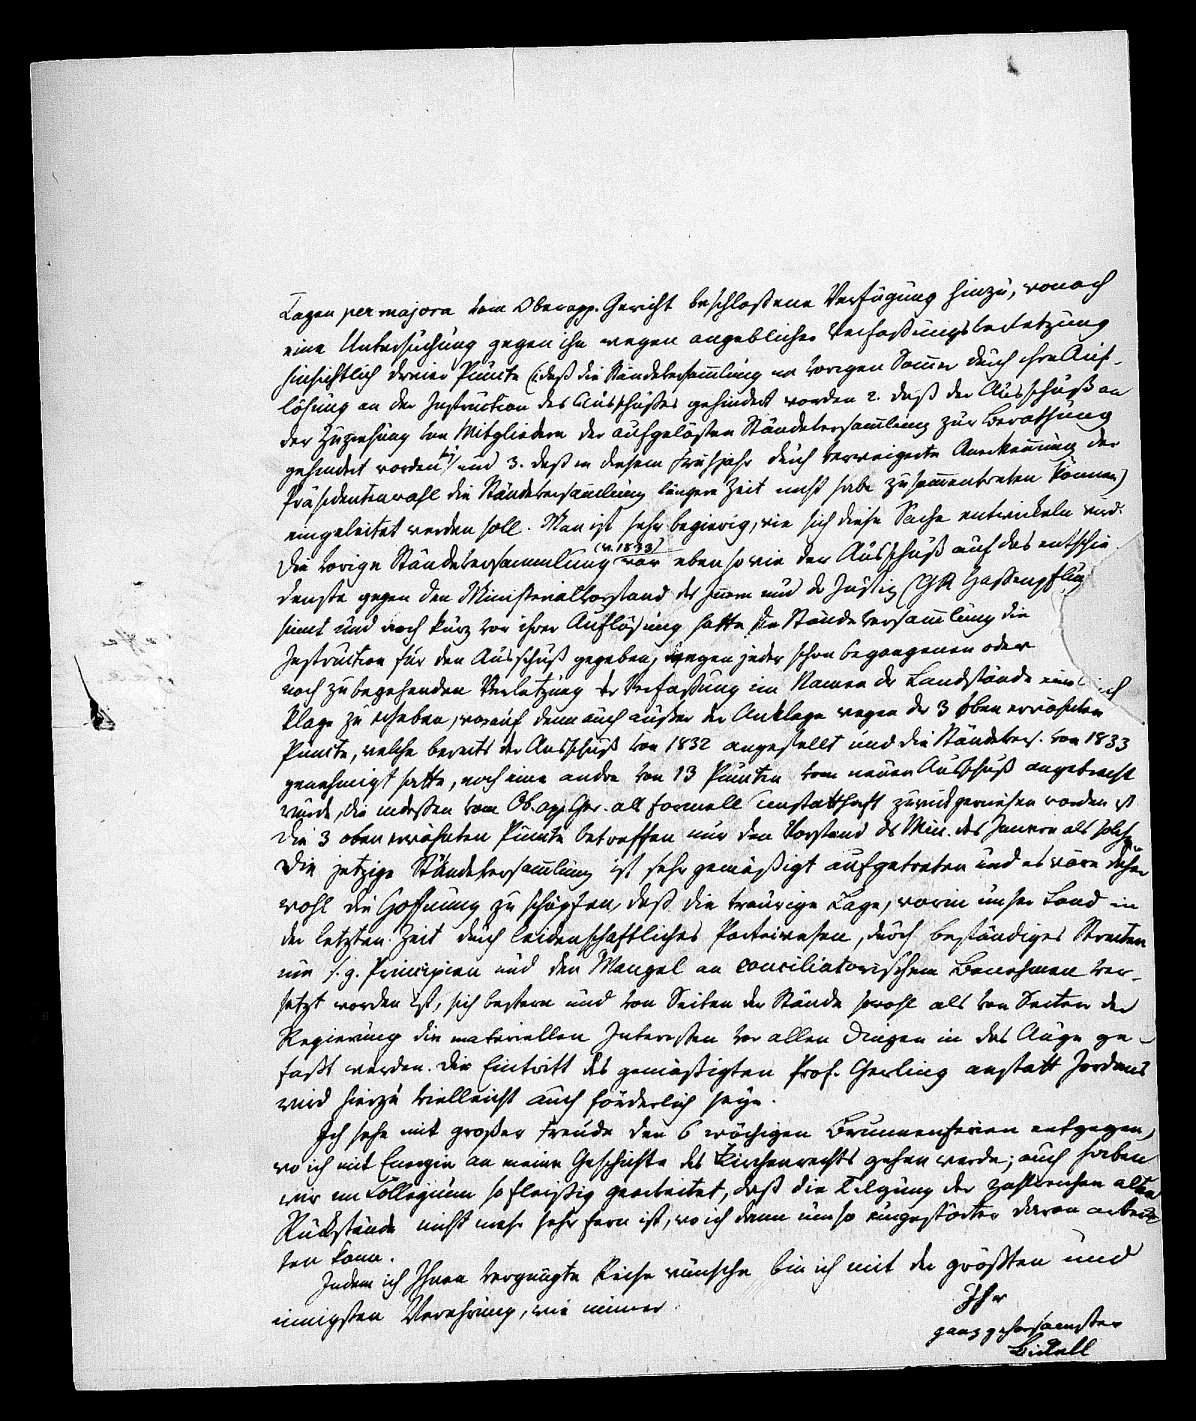 Tagen per majora vom Oberapp. Gericht beschlossene Verfügung hinzu, wonach
eine Untersuchung gegen ihn wegen angeblicher Verfassungsverletzung
hinsichtlich dreier Punkte (1. daß die Ständeversammlung im vorigen Sommer durch ihre Auf-
lösung an der Instruction des Ausschusses gehindert worden 2. daß der Ausschuß an
der Zuziehung von Mitgliedern der aufgelösten Ständeversammlung zur Berathung
gehindert worden und 3. daß in diesem Frühjahr durch verweigerte Anerkennung der
Präsidentenwahl die Ständeversammlung längere Zeit nicht habe zusammentreten können)
eingeleitet werden soll. Man ist sehr begierig, wie sich diese Sache entwickeln wird.
Die vorige Ständeversammlung (v. 1833) war eben so wie der Ausschuß auf das entschie-
denste gegen den Ministerialvorstand des Innern und der Justiz (GR Hassenpflug)
gesinnt und noch kurz vor ihrer Auflösung hatte die Ständeversammlung die
Instruction für den Ausschuß gegeben, wegen jeder schon begangenen oder
noch zu begehenden Verletzung der Verfassung im Namen der Landstände
Klage zu erheben, worauf denn auch außer der Anklage wegen der 3 oben erwähnten
Punkte, welche bereits der Ausschuß von 1832 angestellt und die Ständevers. von 1833
genehmigt hatte, noch eine andre von 13 Punkten vom neuen Ausschuß angebracht
wurde, die indessen vom Ob. App. Ger. als formell unstatthaft zurückgewiesen worden ist.
Die 3 oben erwähnten Punkte betreffen nur den Vorstand des Min. des Innern als solchen.
Die jetzige Ständeversammlung ist sehr gemäßigt aufgetreten und es wäre daher
wohl die Hoffnung zu schöpfen, daß die traurige Lage, worin unser Land in
der letzten Zeit durch leidenschaftliches Parteiwesen, durch beständiges Streiten
um s. g. Principien und den Mangel an conciliatorischem Benehmen ver-
setzt worden ist, sich bessere und von Seiten der Stände sowohl als von Seiten der
Regierung die materiellen Interessen vor allen Dingen in das Auge ge-
faßt werden. Der Eintritt des gemäßigten Prof. Gerling anstatt Jordans
wird hierzu vielleicht auch förderlich seyn.
Ich sehe mit großer Freude den 6 wöchigen Brunnenferien entgegen,
wo ich mit Energie an meine Geschichte des Kirchenrechts gehen werde; auch haben
wir im Collegium so fleißig gearbeitet, daß die Tilgung der zahlreichen alten
Rückstände nicht mehr sehr fern ist, wo ich dann um so ungestörter daran arbei-
ten kann.
Indem ich Ihnen vergnügte Reise wünsche bin ich mit der größten und
innigsten Verehrung, wie immer
Ihr
ganz gehorsamster
Bickell